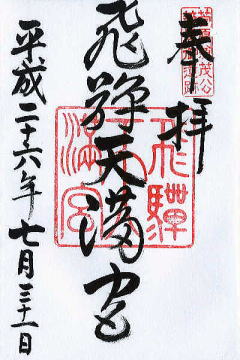 奉拝
飛騨天満宮
平成二十六年七月三十一日
飛驒天滿宮